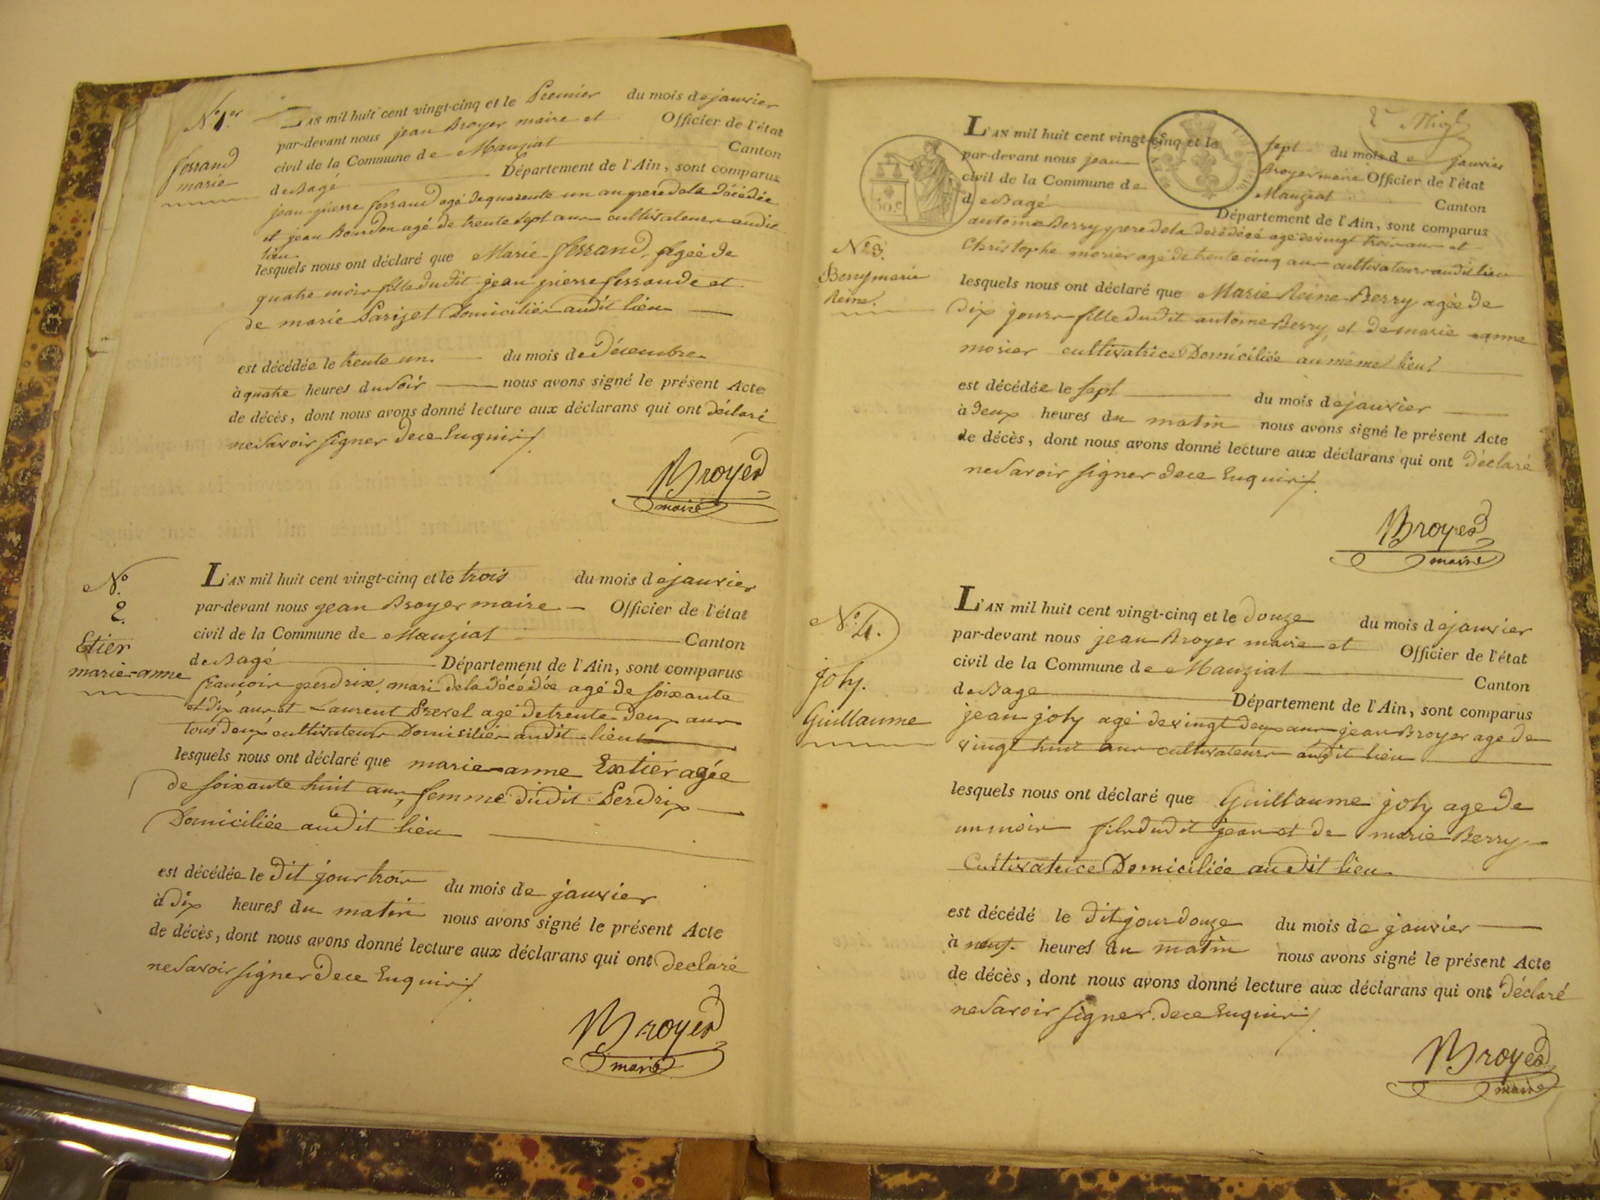 N° 1er
ferrand
marie
L'AN mil huit cent vingt-cinq et le Premier du mois de janvier
par-devant nous jean Broyer maire et Officier de l'état
civil de la Commune de Manziat Canton
de Bagé Département de l'Ain, sont comparus
jean pierre ferrand agé de quarente un an pere de la décédée
et jean Bourdon agé de trente sept ans cultivateurs audit
lieu
lesquels nous ont déclaré que Marie ferrand, agée de
quatre mois fille dudit jean pierre ferrand et
de marie Parizet Domiciliés audit lieu
est décédée le trente un du mois de décembre
à quatre heures du soir nous avons signé le présent Acte
de décès, dont nous avons donné lecture aux déclarans qui ont déclaré
ne savoir signer de ce Enquis
Broyer
maire
N°
2.
Etier
marie-anne
L'AN mil huit cent vingt-cinq et le trois du mois de janvier
par-devant nous jean Broyer maire Officier de l'état
civil de la Commune de Manziat Canton
de Bagé Département de l'Ain, sont comparus
françois perdrix, mari de la décédée agé de soixante
et dix ans et Laurent Prevel agé de trente deux ans
tous deux cultivateurs Domiciliés audit lieu
lesquels nous ont déclaré que marie-anne Extier agée
de soixante huit ans, femme dudit Perdrix
Domiciliée audit lieu
est décédée le dit jour trois du mois de janvier
à dix heures du matin nous avons signé le présent Acte
de décès, dont nous avons donné lecture aux déclarans qui ont declaré
ne savoir signer de ce Enquis
Broyer
maire
2e
L'AN mil huit cent vingt-cinq et le sept du mois de janvier
par-devant nous jean Broyer maire Officier de l'état
civil de la Commune de Manziat Canton
de Bagé Département de l'Ain, sont comparus
antoine Berry pere de la décédée agé de vingt trois ans et
Christophe morier agé de trente cinq ans cultivateurs audit lieu
N° 3.
Berry marie
Reine.
lesquels nous ont déclaré que Marie Reine Berry agée de
dix jours fille dudit antoine Berry, et de marie anne
morier cultivatrice Domiciliée au même lieu
est décédée le sept du mois de janvier
à deux heures du matin nous avons signé le présent Acte
de décès, dont nous avons donné lecture aux déclarans qui ont déclaré
ne savoir signer de ce Enquis
Broyer
maire
N° 4.
joly.
Guillaume
L'AN mil huit cent vingt-cinq et le douze du mois de janvier
par-devant nous jean Broyer maire et Officier de l'état
civil de la Commune de Manziat Canton
de Bage Département de l'Ain, sont comparus
jean joly agé de vingt deux ans jean Broyer age de
vingt huit ans cultivateurs audit lieu
lesquels nous ont déclaré que Guillaume joly age de
un mois fils dudit jean et de marie Berry
Cultivatrice Domiciliée audit lieu
est décédé le dit jour douze du mois de janvier
à neuf heures du matin nous avons signé le présent Acte
de décès, dont nous avons donné lecture aux déclarans qui ont déclaré
ne savoir signer de ce Enquis
Broyer
maire